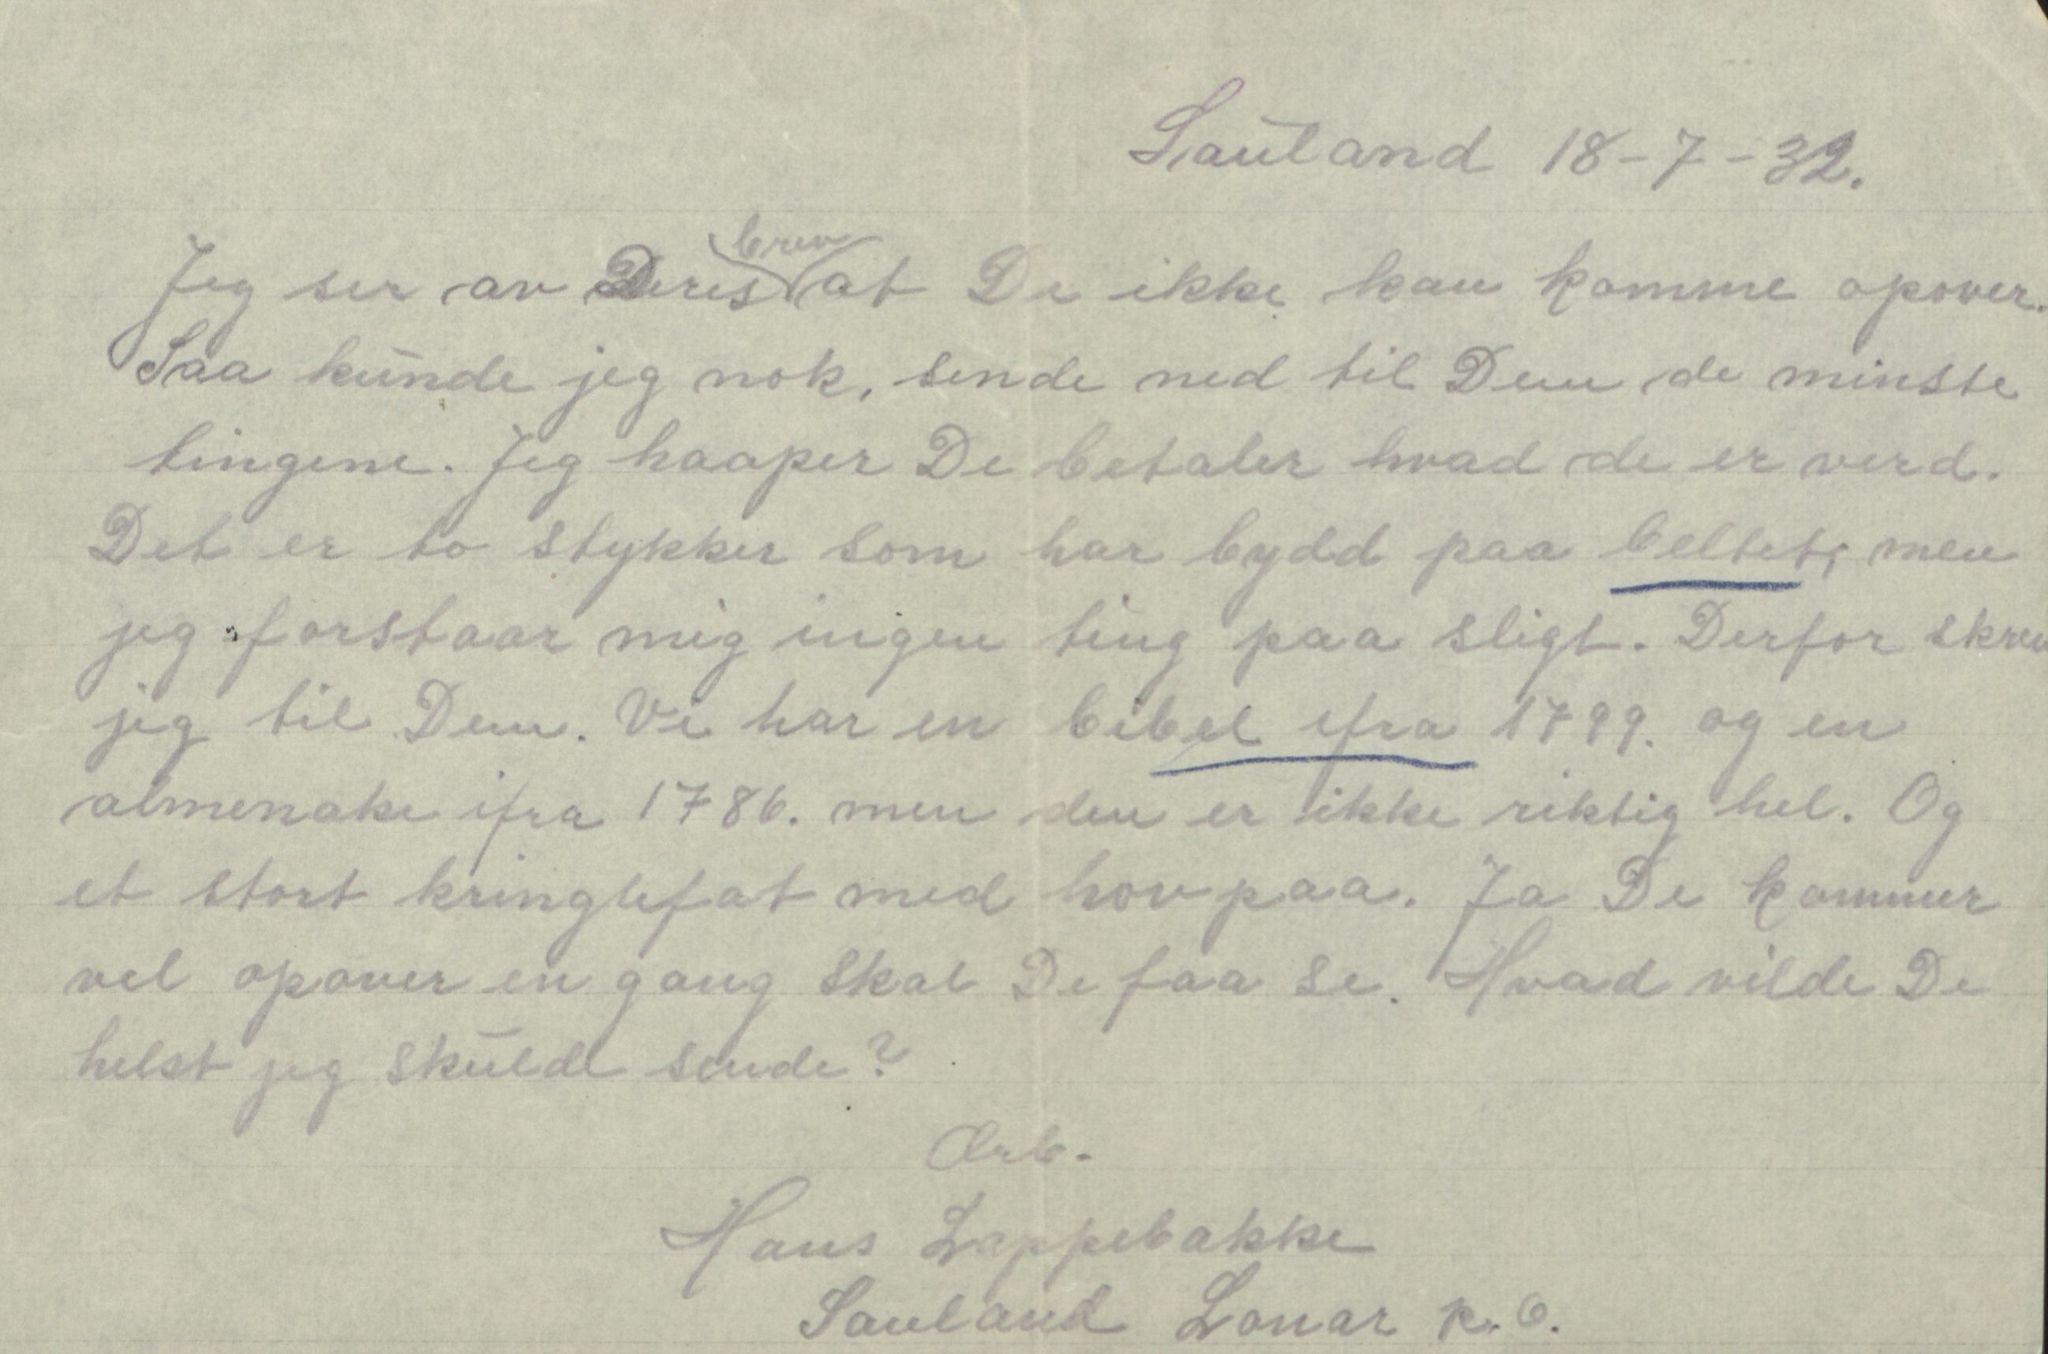 Sauland 18-7-32.
Jeg ser av Deres brev at De ikke kan komme opover.
Saa kunde jeg nok, sende ned til Dem de minste
tingene. Jeg haaper De betaler hvad de er verd.
Det er to stykker som har bydd paa beltet, men
jeg forstaar mig ingen ting paa sligt. Derfor skrev
jeg til Dem. Vi har en bibel ifra 1799. og en
almenake ifra 1786. men den er ikke riktig hel. Og
et stort kringlefat med hov paa. Ja De kommer
vel opover en gang skal De faa se. Hvad vilde De
helst jeg skulde sende?
Ærb.
Hans Lappebakke
Sauland Lonar